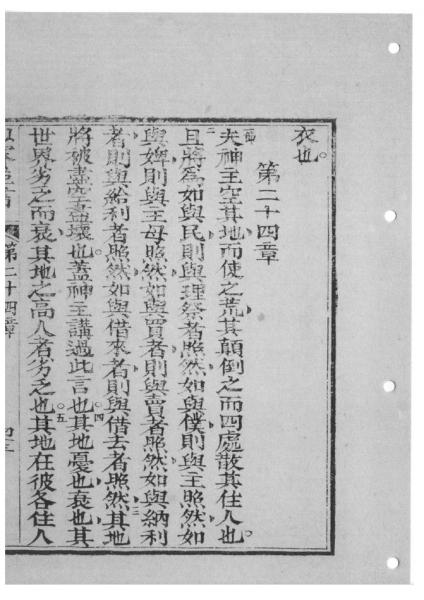 衣也。
第二十四章
節夫神主空其地而使之荒其顛倒之而四處散其住人也。
二且將爲如與民則與理祭者照然如與僕則與主照然如
與婢則與主母照然如與買者則與賣者照然如與納利
者則與給利者照然如與借來者則與借去者照然三其地
將破盡空盡壞也蓋神主講過此言也四其地憂也衰也其
世界劣乏而衰其地之高人者劣乏也。五其地在彼各住人
第二十四章